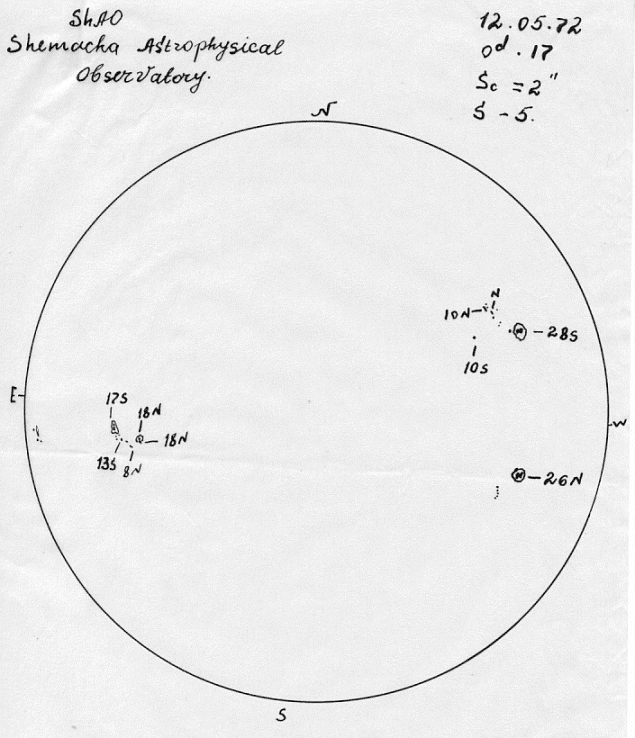 ShAO
Shemacha Astrophysical
Observatory.
12.05.72
0d.17
Sc = 2"
S - 5.
N
N
10N
28S
10S
E
17S
18N
18N
W
13S
8N
26N
S